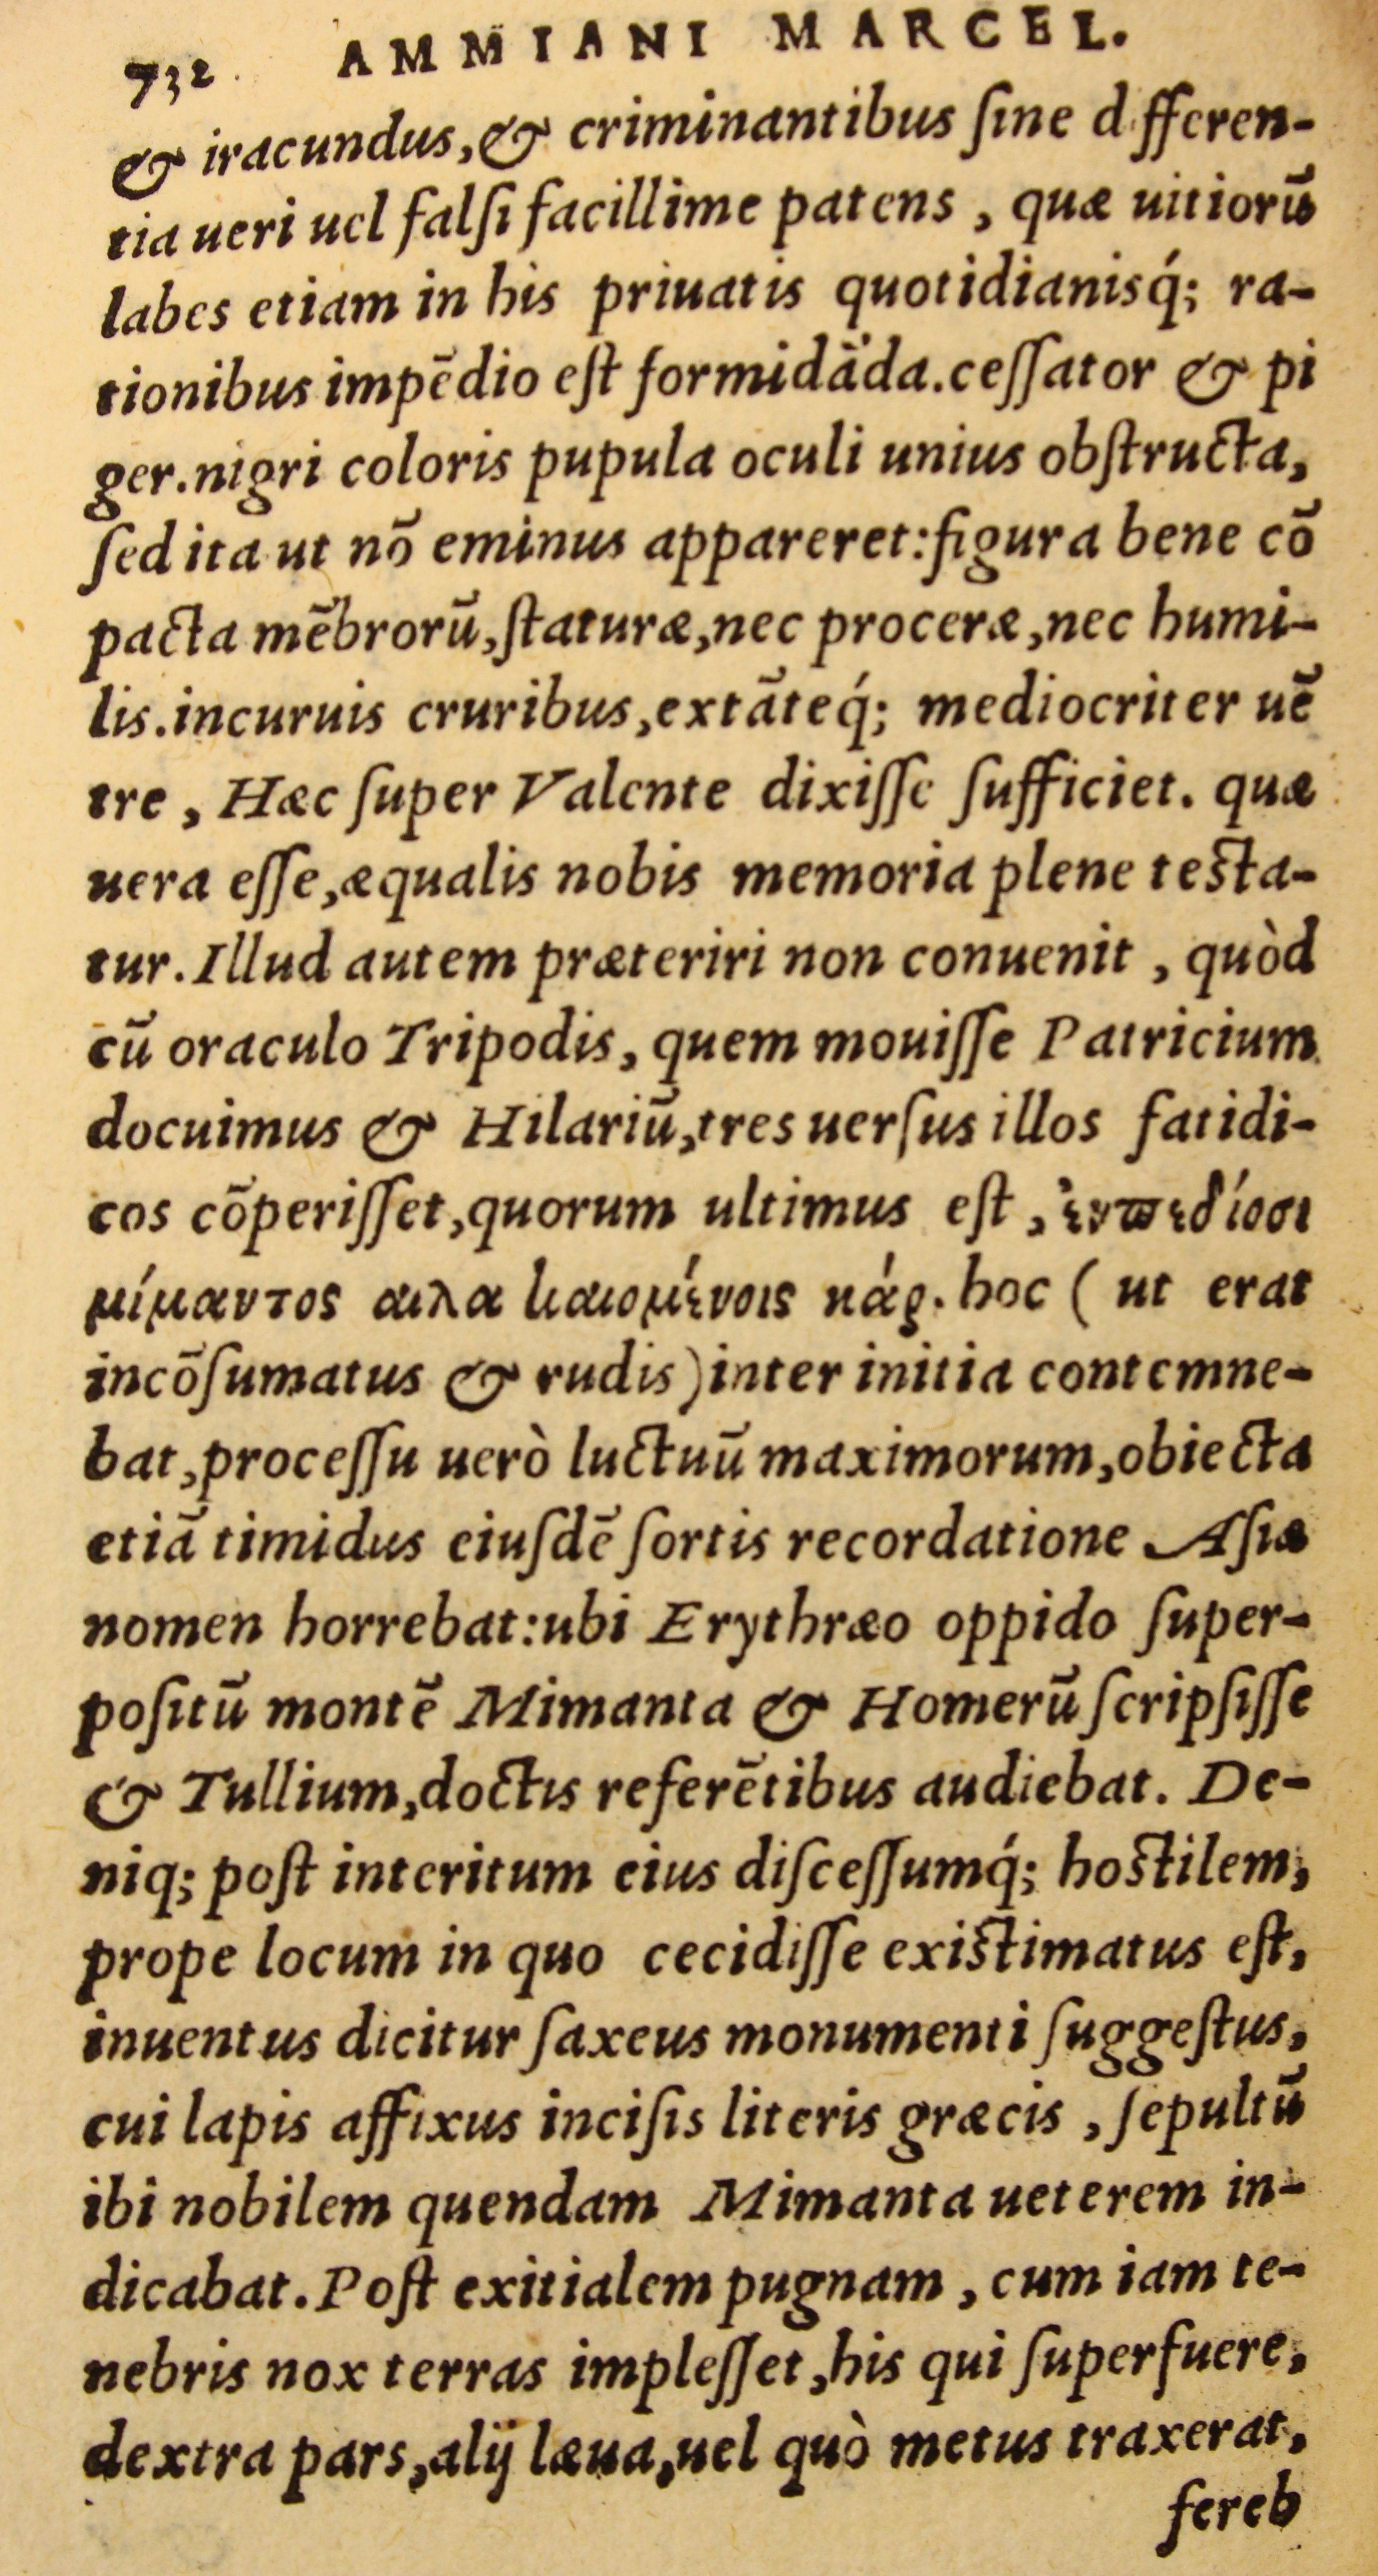 732 AMMIANI MARCEL.
& iracundus, & criminantibus ſine differen-
tia ueri uel falſi facillime patens, quæ uitiorū
labes etiam in his priuatis quotidianisq́; ra-
tionibus impēdio eſt formidāda. ceſſator & pi
ger. nigri coloris pupula oculi unius obſtructa,
ſed ita ut nō eminus appareret: figura bene cō
pacta mēbrorū, ſtaturæ, nec proceræ, nec humi-
lis. incuruis cruribus, extāteq́; mediocriter uē
tre, Hæc ſuper Valente dixiſſe ſufficiet. quæ
uera eſſe, æqualis nobis memoria plene teſta-
tur. Illud autem præteriri non conuenit, quòd
cū oraculo Tripodis, quem mouiſſe Patricium
docuimus & Hilariū, tres uerſus illos fatidi-
cos cōperiſſet, quorum ultimus eſt, ἐνπεδίοσι
μίμαντος αιλα καιομένοις κάρ. hoc (ut erat
incōſumatus & rudis) inter initia contemne-
bat, proceſſu uerò luctuū maximorum, obiecta
etiā timidus eiuſdē ſortis recordatione Aſiæ
nomen horrebat: ubi Erythræo oppido ſuper-
poſitū montē Mimanta & Homerū ſcripſiſſe
& Tullium, doctis referētibus audiebat. De-
niq; poſt interitum eius diſceſſumq́; hoſtilem,
prope locum in quo cecidiſſe exiſtimatus eſt,
inuentus dicitur ſaxeus monumenti ſuggeſtus,
cui lapis affixus inciſis literis græcis, ſepultū
ibi nobilem quendam Mimanta ueterem in-
dicabat. Poſt exitialem pugnam, cum iam te-
nebris nox terras impleſſet, his qui ſuperfuere,
dextra pars, alij læua, uel quò metus traxerat,
fereb